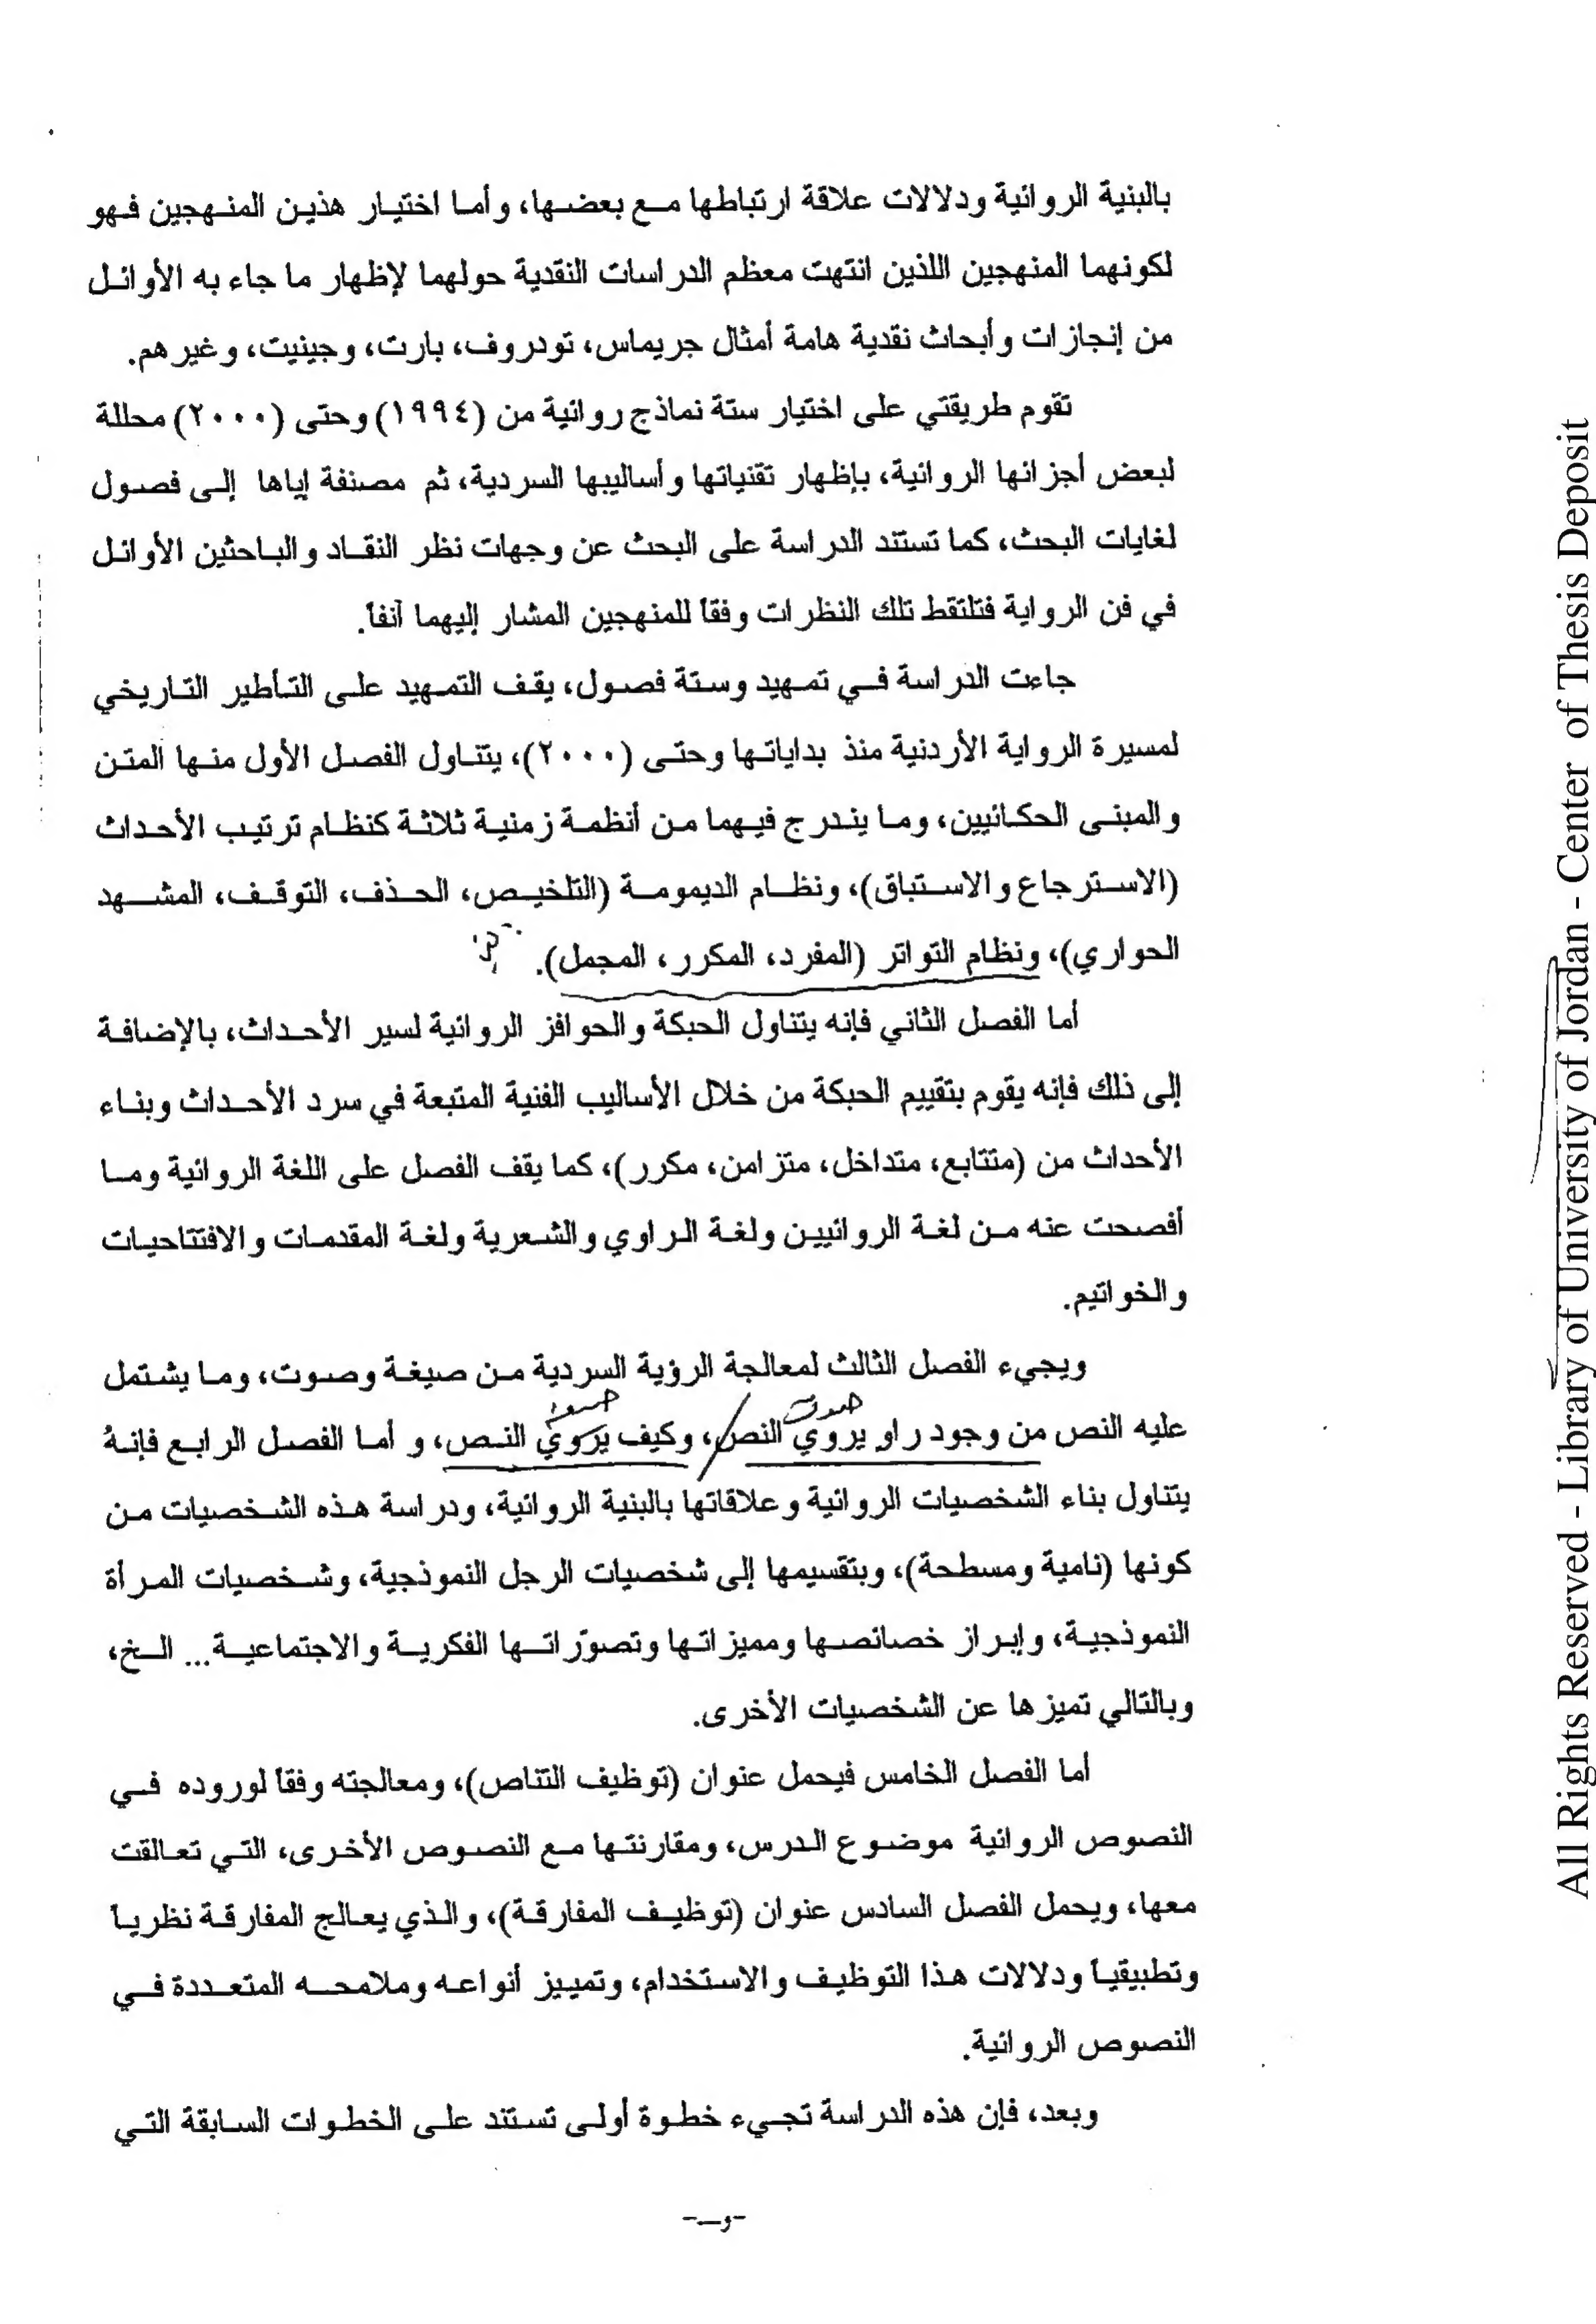 بالبنية الروائية ودلالات علاقة ارتباطها مع بعضها، وأما اختيار هذين المنهجين فهو
لكونهما المنهجين اللذين انتهت معظم الدراسات النقدية حولهما لإظهار ما جاء به الأوائل
من إنجازات وأبحاث نقدية هامة أمثال جريماس، تودروف، بارت، وجينيت، وغيرهم.
تقوم طريقتي على اختيار ستة نماذج روائية من (١٩٩٤) وحتى (٢٠٠٠) محللة
لبعض أجزائها الروائية، بإظهار تقنياتها وأساليبها السردية، ثم مصنفة إياها إلى فصول
لغايات البحث، كما تستند الدراسة على البحث عن وجهات نظر النقاد والباحثين الأوائل
في فن الرواية فتلتقط تلك النظرات وفقاً للمنهجين المشار إليهما آنفاً.
جاءت الدراسة في تمهيد وستة فصول، يقف التمهيد على التأطير التاريخي
لمسيرة الرواية الأردنية منذ بداياتها وحتى (٢٠٠٠)، يتناول الفصل الأول منها المتن
والمبنى الحكائيين، وما يندرج فيهما من أنظمة زمنية ثلاثة كنظام ترتيب الأحداث
(الاسترجاع والاستباق)، ونظام الديمومة (التلخيص، الحذف، التوقف، المشهد
الحواري)، ونظام التواتر (المفرد، المكرر، المجمل).
أما الفصل الثاني فإنه يتناول الحبكة والحوافز الروائية لسير الأحداث، بالإضافة
إلى ذلك فإنه يقوم بتقييم الحبكة من خلال الأساليب الفنية المتبعة في سرد الأحداث وبناء
الأحداث من (متتابع، متداخل، متزامن، مكرر)، كما يقف الفصل على اللغة الروائية وما
أفصحت عنه من لغة الروائيين ولغة الراوي والشعرية ولغة المقدمات والافتتاحيات
والخواتيم.
ويجيء الفصل الثالث لمعالجة الرؤية السردية من صيغة وصوت، وما يشتمل
عليه النص من وجود راوٍ يروي النص، وكيف يروي النص، و أما الفصل الرابع فإنهُ
يتناول بناء الشخصيات الروائية وعلاقاتها بالبنية الروائية، ودراسة هذه الشخصيات من
كونها (نامية ومسطحة)، وبتقسيمها إلى شخصيات الرجل النموذجية، وشخصيات المرأة
النموذجية، وإبراز خصائصها ومميزاتها وتصوّراتها الفكرية والاجتماعية... الخ،
وبالتالي تميزها عن الشخصيات الأخرى.
أما الفصل الخامس فيحمل عنوان (توظيف التناص)، ومعالجته وفقاً لوروده في
النصوص الروائية موضوع الدرس، ومقارنتها مع النصوص الأخرى، التي تعالقت
معها، ويحمل الفصل السادس عنوان (توظيف المفارقة)، والذي يعالج المفارقة نظرياً
وتطبيقياً ودلالات هذا التوظيف والاستخدام، وتمييز أنواعه وملامحه المتعددة في
النصوص الروائية.
وبعد، فإن هذه الدراسة تجيء خطوة أولى تستند على الخطوات السابقة التي
-و-
All Rights Reserved - Library of University of Jordan - Center of Thesis Deposit